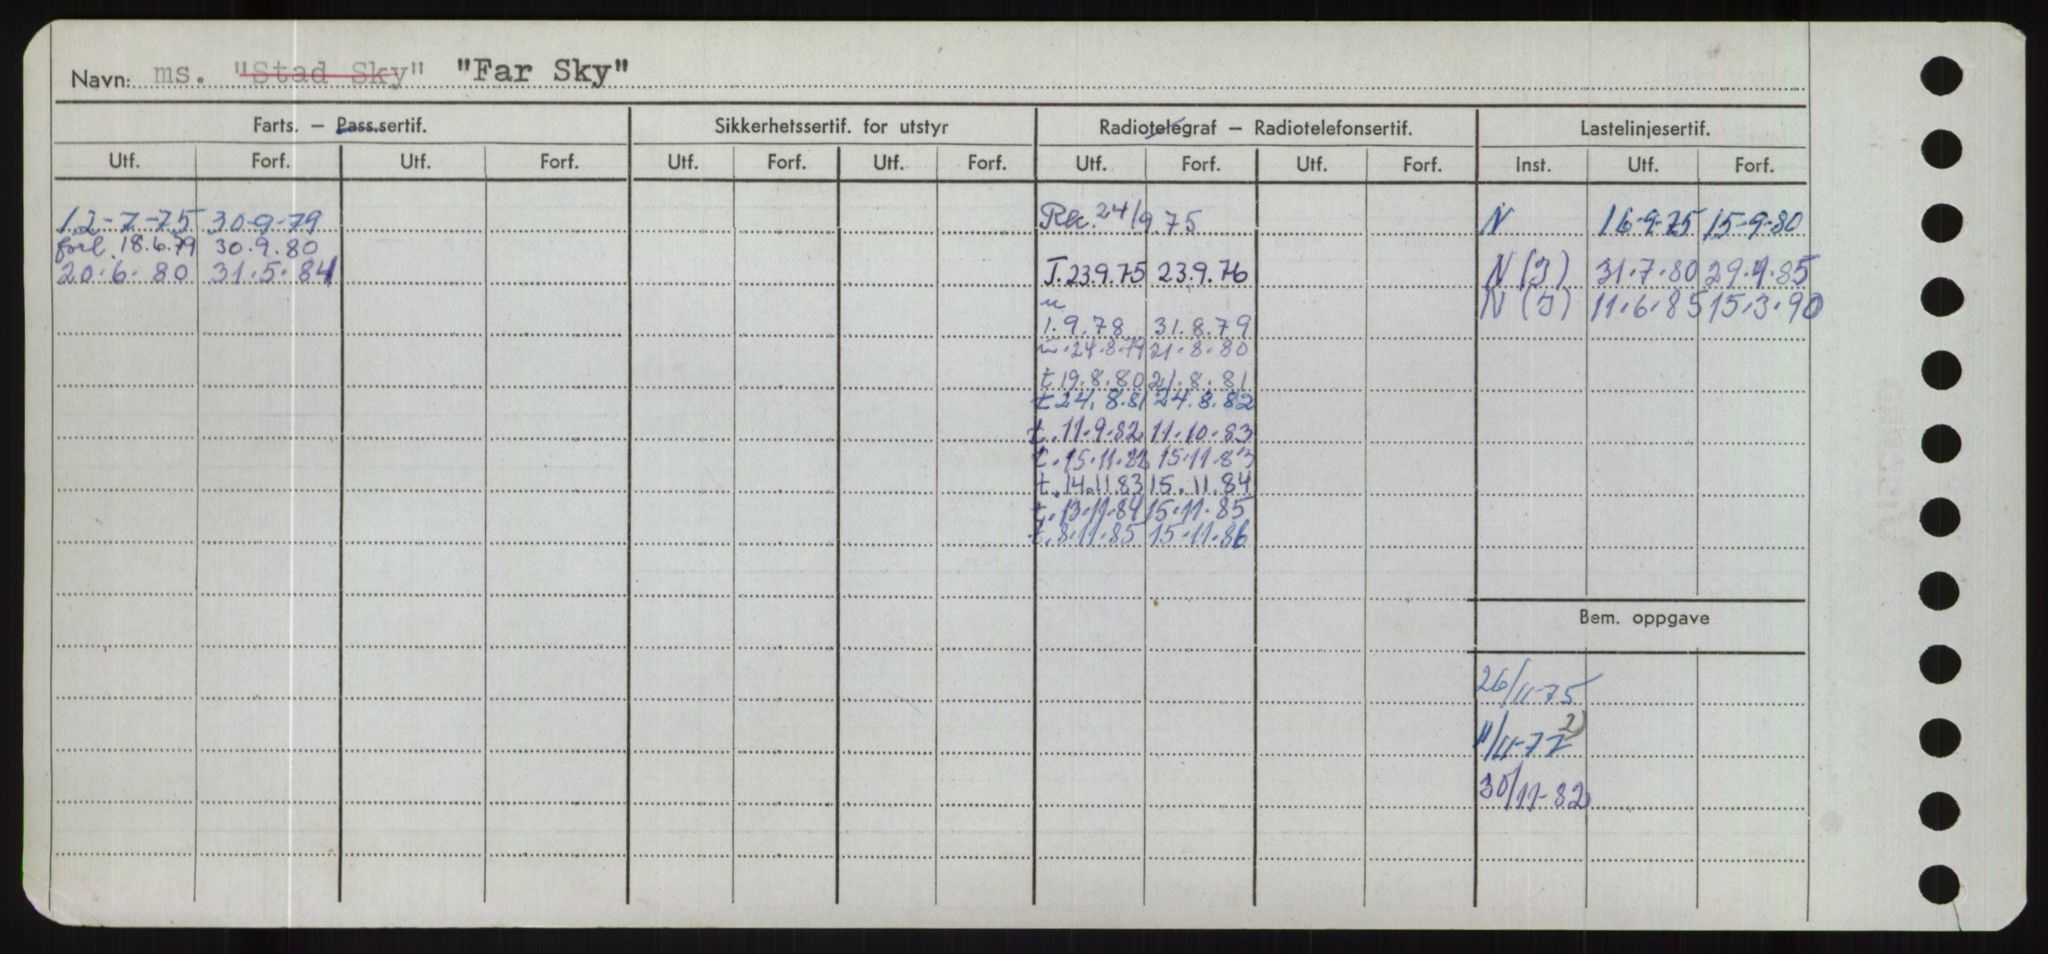 Navn: ms. "Stad Sky" "Far Sky"
Farts. — Pass.sertif. Sikkerhetssertif. for utstyr Radiotelegraf — Radiotelefonsertif. Lastelinjesertif.
Utf. Forf. Utf. Forf. Utf. Forf. Utf. Forf. Utf. Forf. Utf. Forf. Inst. Utf. Forf.
12-7-75 30-9-79 24/9 75 N 16-9-75 15-9-80
forl. 18.6.79 30.9.80
20.6.80 31.5.84 T.23.9.75 23.9.76 N (J) 31.7.80 29.4.85
N (J) 11.6.85 15.3.90
1.9.78 31.8.79
24.8.79 21.8.80
t 19.8.80 21.8.81
t 24.8.81 24.8.82
t.11.9.82 11.10.83
t.15.11.82 15.11.83
t.14.11.83 15.11.84
t.13.11.84 15.11.85
t.8.11.85 15.11.86
Bem. oppgave
26/11-75
11/11-77 2)
30/11-82